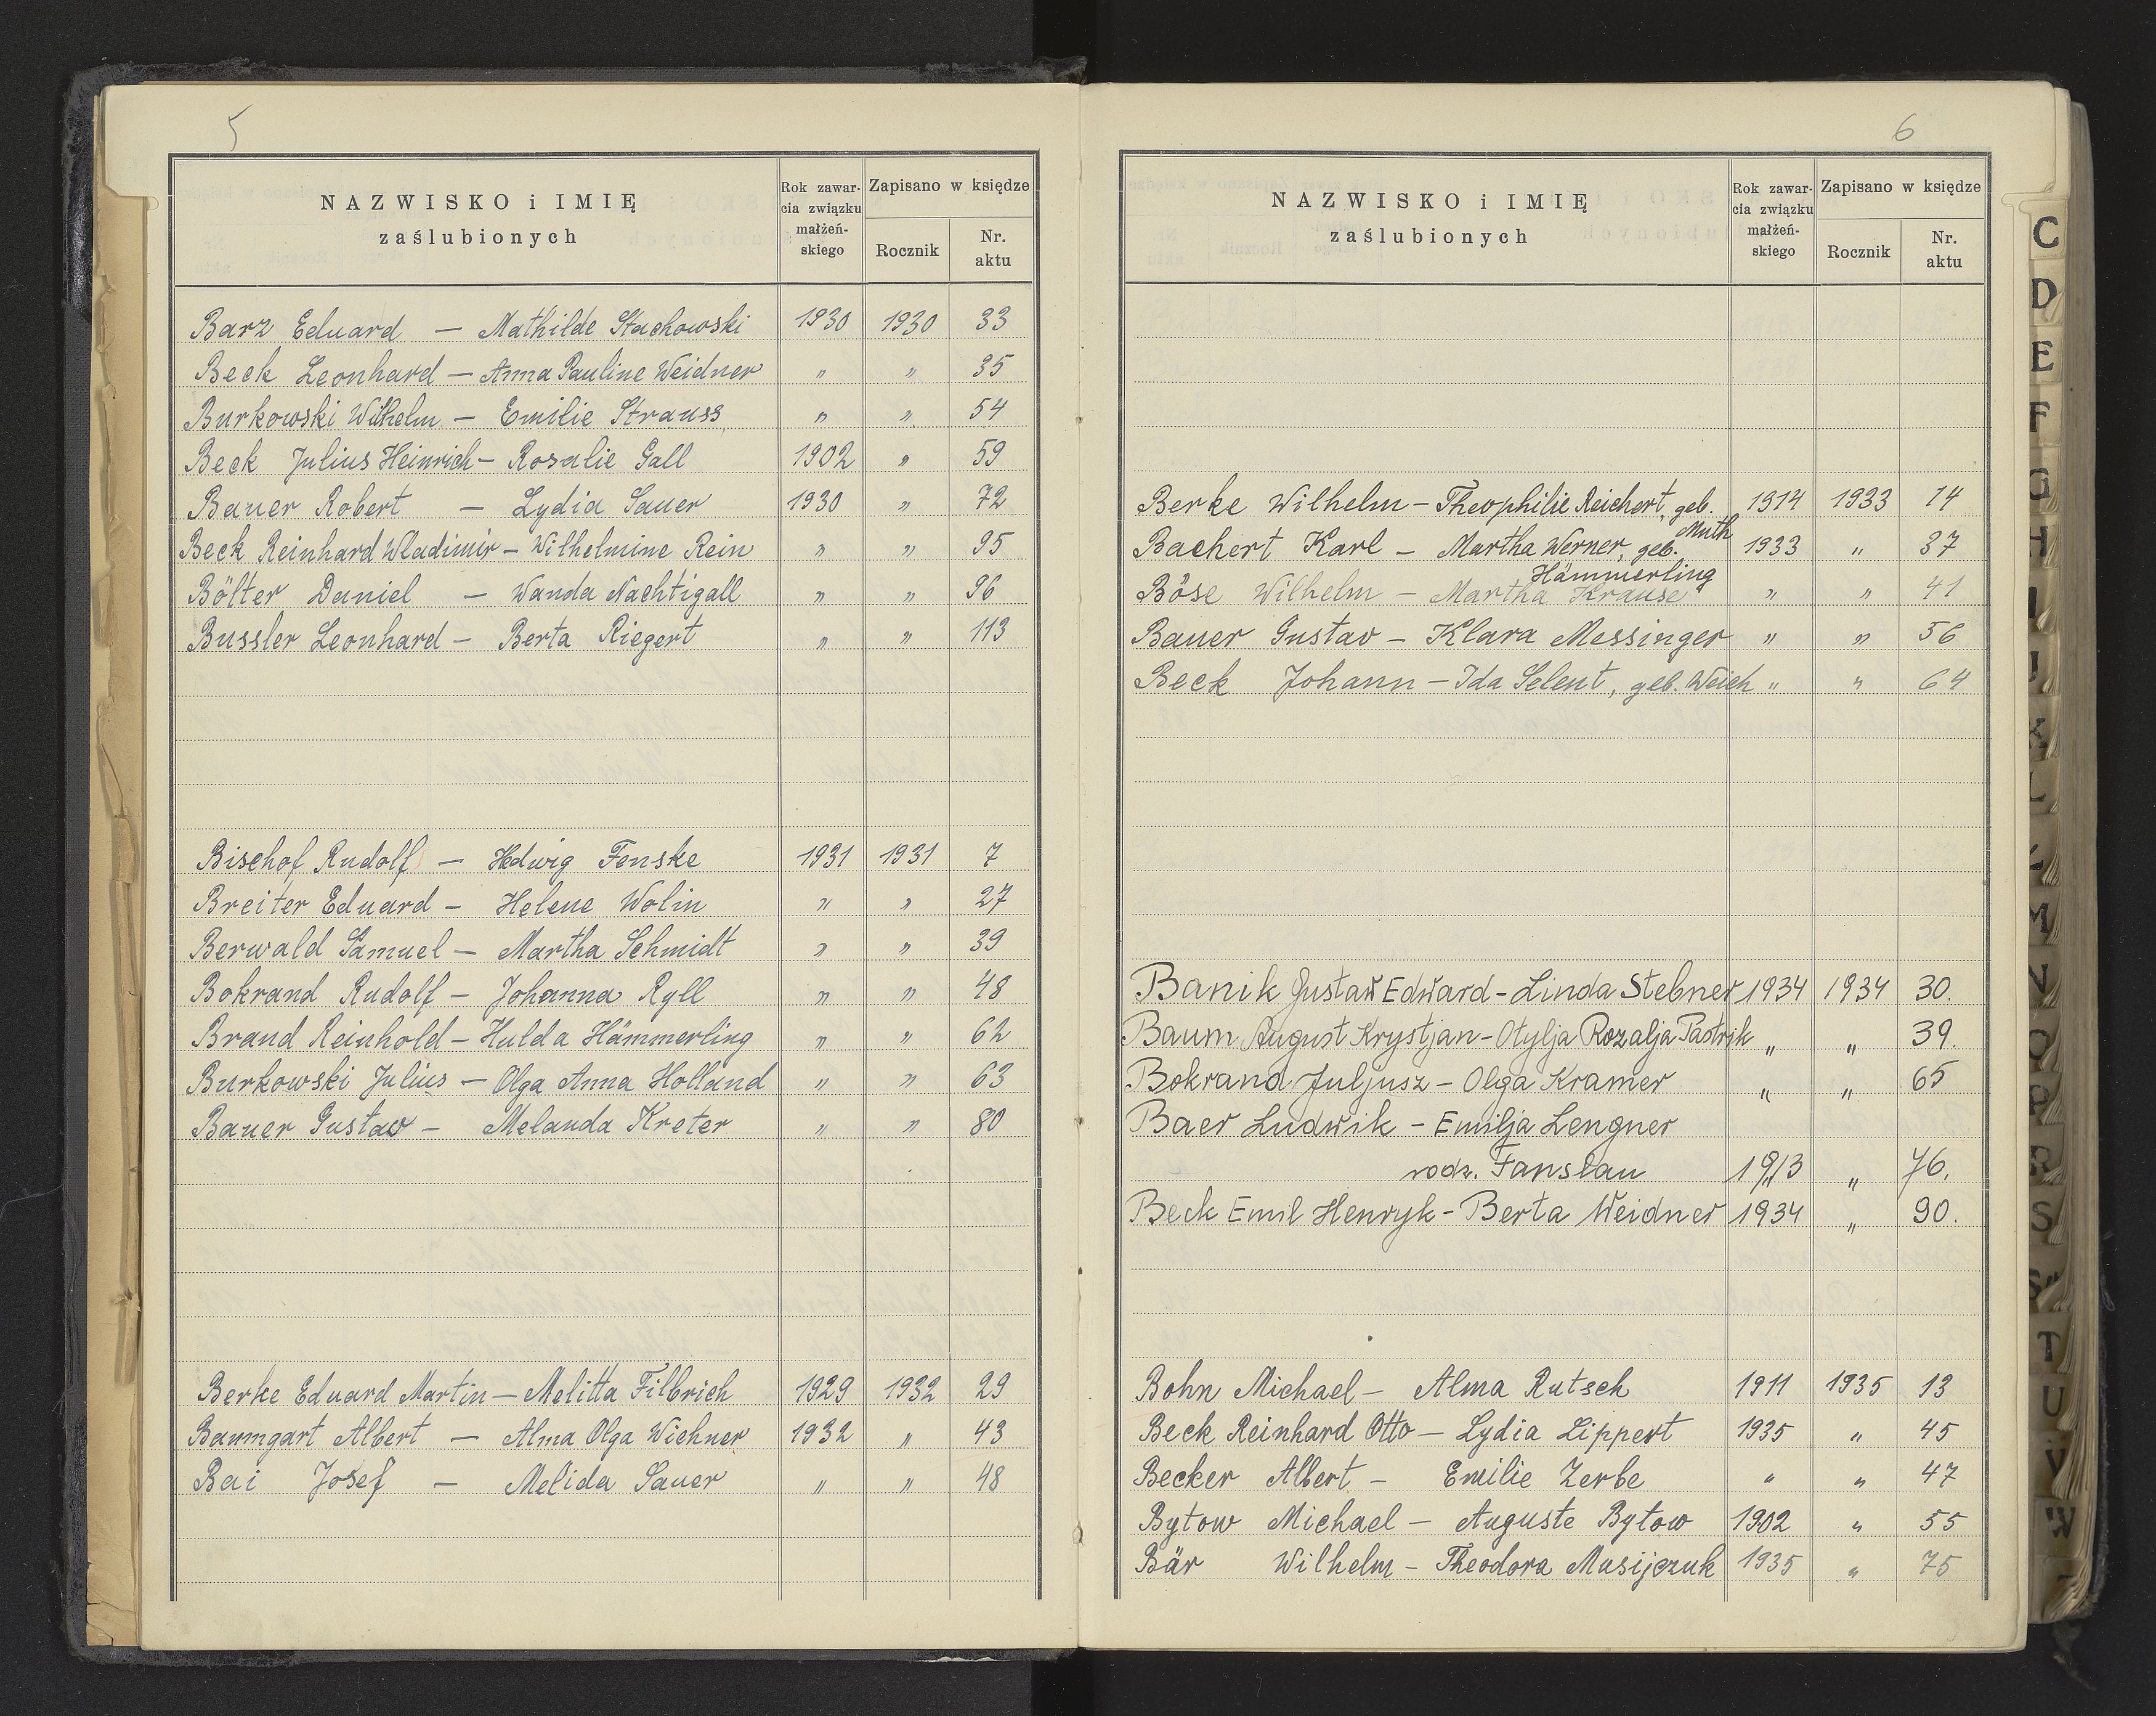 5
NAZWISKO i IMIĘ
zaślubionych
Rok zawar-
cia związku
małżeń-
skiego
Zapisano w księdze
Rocznik
Nr.
aktu
Barz Eduard — Mathilde Stachowski 1930 1930 33
Beck Leonhard — Anna Pauline Weidner " " 35
Burkowski Wilhelm — Emilie Strauss " " 54
Beck Julius Heinrich — Rosalie Gall 1902 " 59
Bauer Robert — Lydia Sauer 1930 " 72
Beck Reinhard Wladimir — Wilhelmine Rein " " 95
Bölter Daniel — Wanda Nachtigall " " 96
Bussler Leonhard — Berta Riegert " " 113
Bischof Rudolf — Hedwig Fenske 1931 1931 7
Breiter Eduard — Helene Wolin " " 27
Berwald Samuel — Martha Schmidt " " 39
Bokrand Rudolf — Johanna Ryll " " 48
Brand Reinhold — Hulda Hämmerling " " 62
Burkowski Julius — Olga Anna Holland " " 63
Bauer Gustav — Melanda Kreter " " 80
Berke Eduard Martin — Melitta Filbrich 1929 1932 29
Baumgart Albert — Alma Olga Wichner 1932 " 43
Bai Josef — Melida Sauer " " 48
6
NAZWISKO i IMIĘ
zaślubionych
Rok zawar-
cia związku
małżeń-
skiego
Zapisano w księdze
Rocznik
Nr.
aktu
Berke Wilhelm — Theophilie Reichert, geb. 1914 1933 14
Muth
Bachert Karl — Martha Werner, geb. 1933 " 37
Hämmerling
Böse Wilhelm — Martha Krause " " 41
Bauer Gustav — Klara Messinger " " 56
Beck Johann — Ida Selent, geb. Weich " " 64
Banik Gustaw Edward - Linda Stebner 1934 1934 30.
Baum August Krystjan - Otylja Rozalja Pastrik " " 39.
Bokrand Juljusz — Olga Kramer " " 65
Baer Ludwik — Emilja Lengner
rodz. Fanslau 1913 " 76.
Beck Emil Henryk - Berta Weidner 1934 " 90.
Bohn Michael — Alma Rutsch 1911 1935 13
Beck Reinhard Otto — Lydia Lippert 1935 " 45
Becker Albert — Emilie Zerbe " " 47
Bytow Michael — Auguste Bytow 1902 " 55
Bär Wilhelm — Theodora Musijczuk 1935 " 75
C
D
E
F
G
H
I
J
K
L
Ł
M
N
O
P
R
S
Ś
T
U
V
W